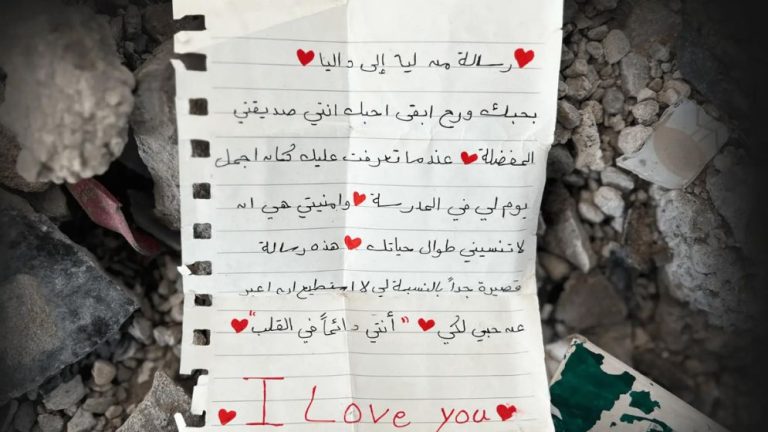 ♥رسالة من ليا إلى داليا♥
بحبك ورح ابقى احبك انتي صديقتي
المفضلة♥ عندما تعرفت عليك كان اجمل
يوم لي في المدرسة♥ وامنيتي هي ان
لا تنسيني طوال حياتك♥ هذه رسالة
قصيرة جداً بالنسبة لي لا استطيع ان اعبر
عن حبي لكي♥ "أنتي دائماً في القلب"♥
♥I Love you♥